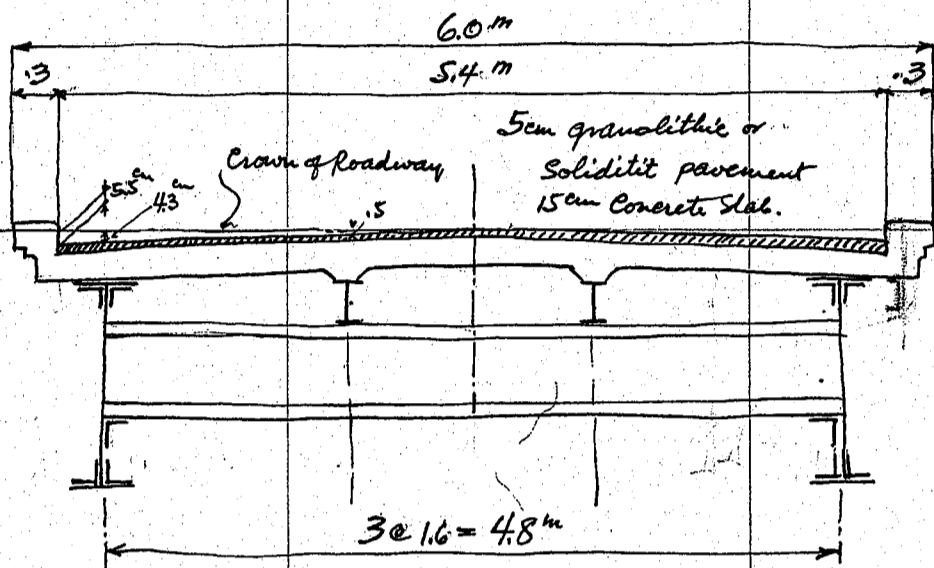 6.0 m
.3
5.4 m
.3
5cm granolithic or
Soliditit pavement
15cm Concrete Slab.
Crown of Roadway
5.5 cm
4.3 cm
.5
3 @ 1.6 = 4.8 m